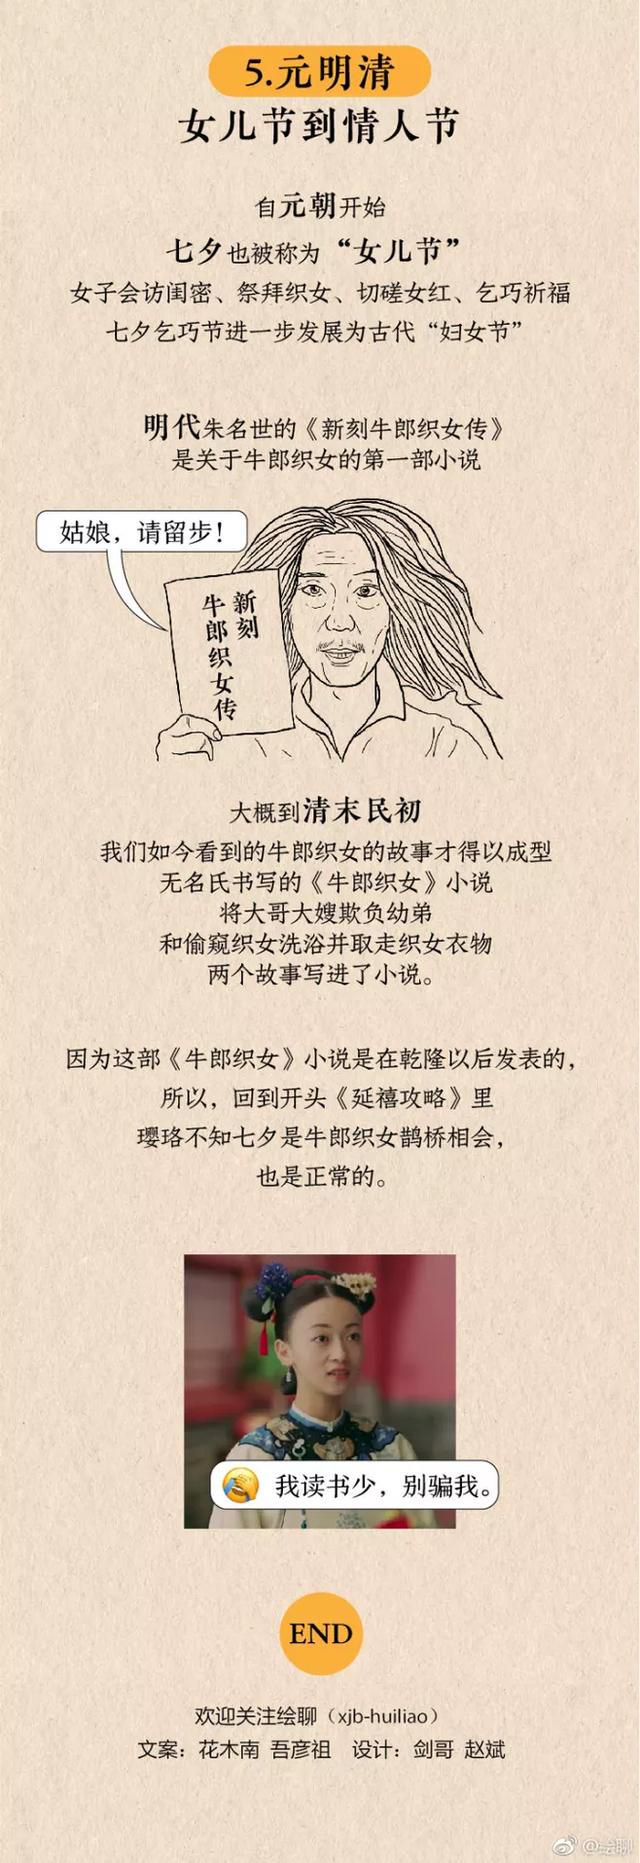 5.元明清
女儿节到情人节
自元朝开始
七夕也被称为“女儿节”
女子会访闺密、祭拜织女、切磋女红、乞巧祈福
七夕乞巧节进一步发展为古代“妇女节”
明代朱名世的《新刻牛郎织女传》
是关于牛郎织女的第一部小说
姑娘，请留步！
新刻
牛郎织女传
大概到清末民初
我们如今看到的牛郎织女的故事才得以成型
无名氏书写的《牛郎织女》小说
将大哥大嫂欺负幼弟
和偷窥织女洗浴并取走织女衣物
两个故事写进了小说。
因为这部《牛郎织女》小说是在乾隆以后发表的，
所以，回到开头《延禧攻略》里
璎珞不知七夕是牛郎织女鹊桥相会，
也是正常的。
我读书少，别骗我。
END
欢迎关注绘聊（xjb-huiliao）
文案：花木南 吾彦祖 设计：剑哥 赵斌
@绘聊